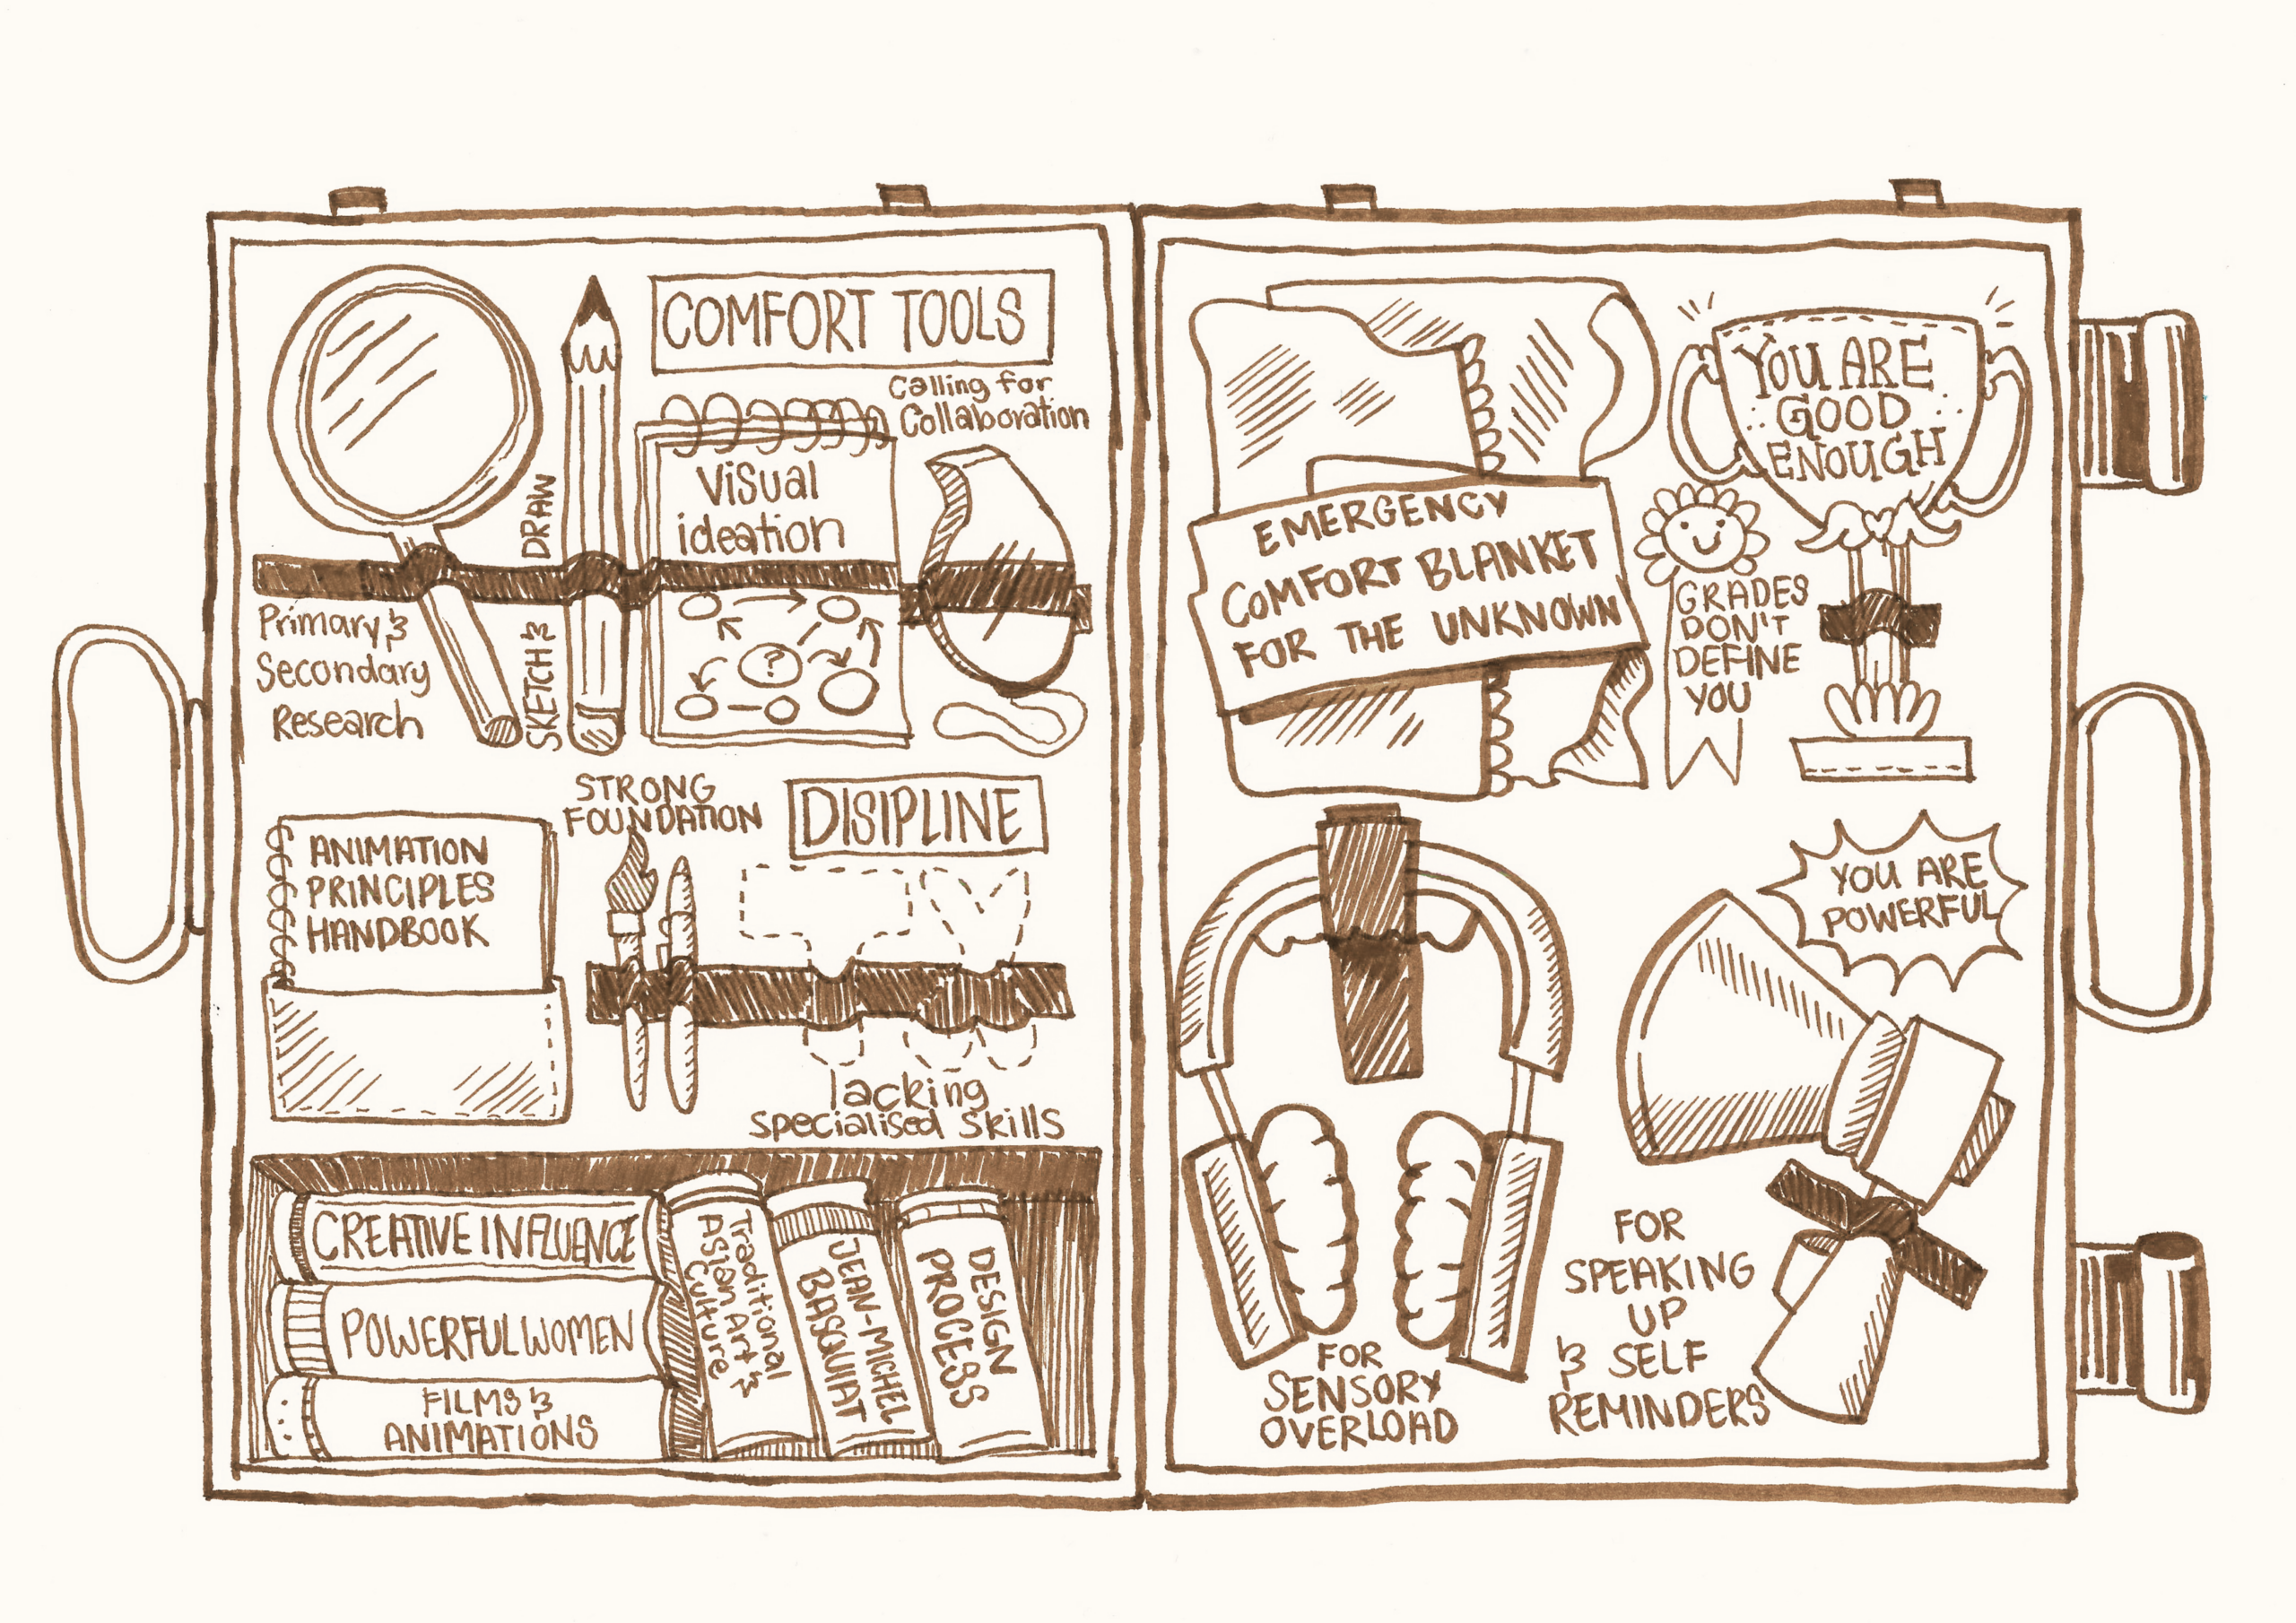 COMFORT TOOLS
Calling for
Collaboration
Visual
ideation
?
SKETCH & DRAW
Primary &
Secondary
Research
STRONG
FOUNDATION
DISIPLINE
ANIMATION
PRINCIPLES
HANDBOOK
lacking
specialised skills
CREATIVE INFLUENCE
POWERFUL WOMEN
FILMS &
ANIMATIONS
Traditional
Asian Art &
Culture
JEAN-MICHEL
BASQUIAT
DESIGN
PROCESS
EMERGENCY
COMFORT BLANKET
FOR THE UNKNOWN
YOU ARE
GOOD
ENOUGH
GRADES
DON'T
DEFINE
YOU
YOU ARE
POWERFUL
FOR
SENSORY
OVERLOAD
FOR
SPEAKING
UP
& SELF
REMINDERS